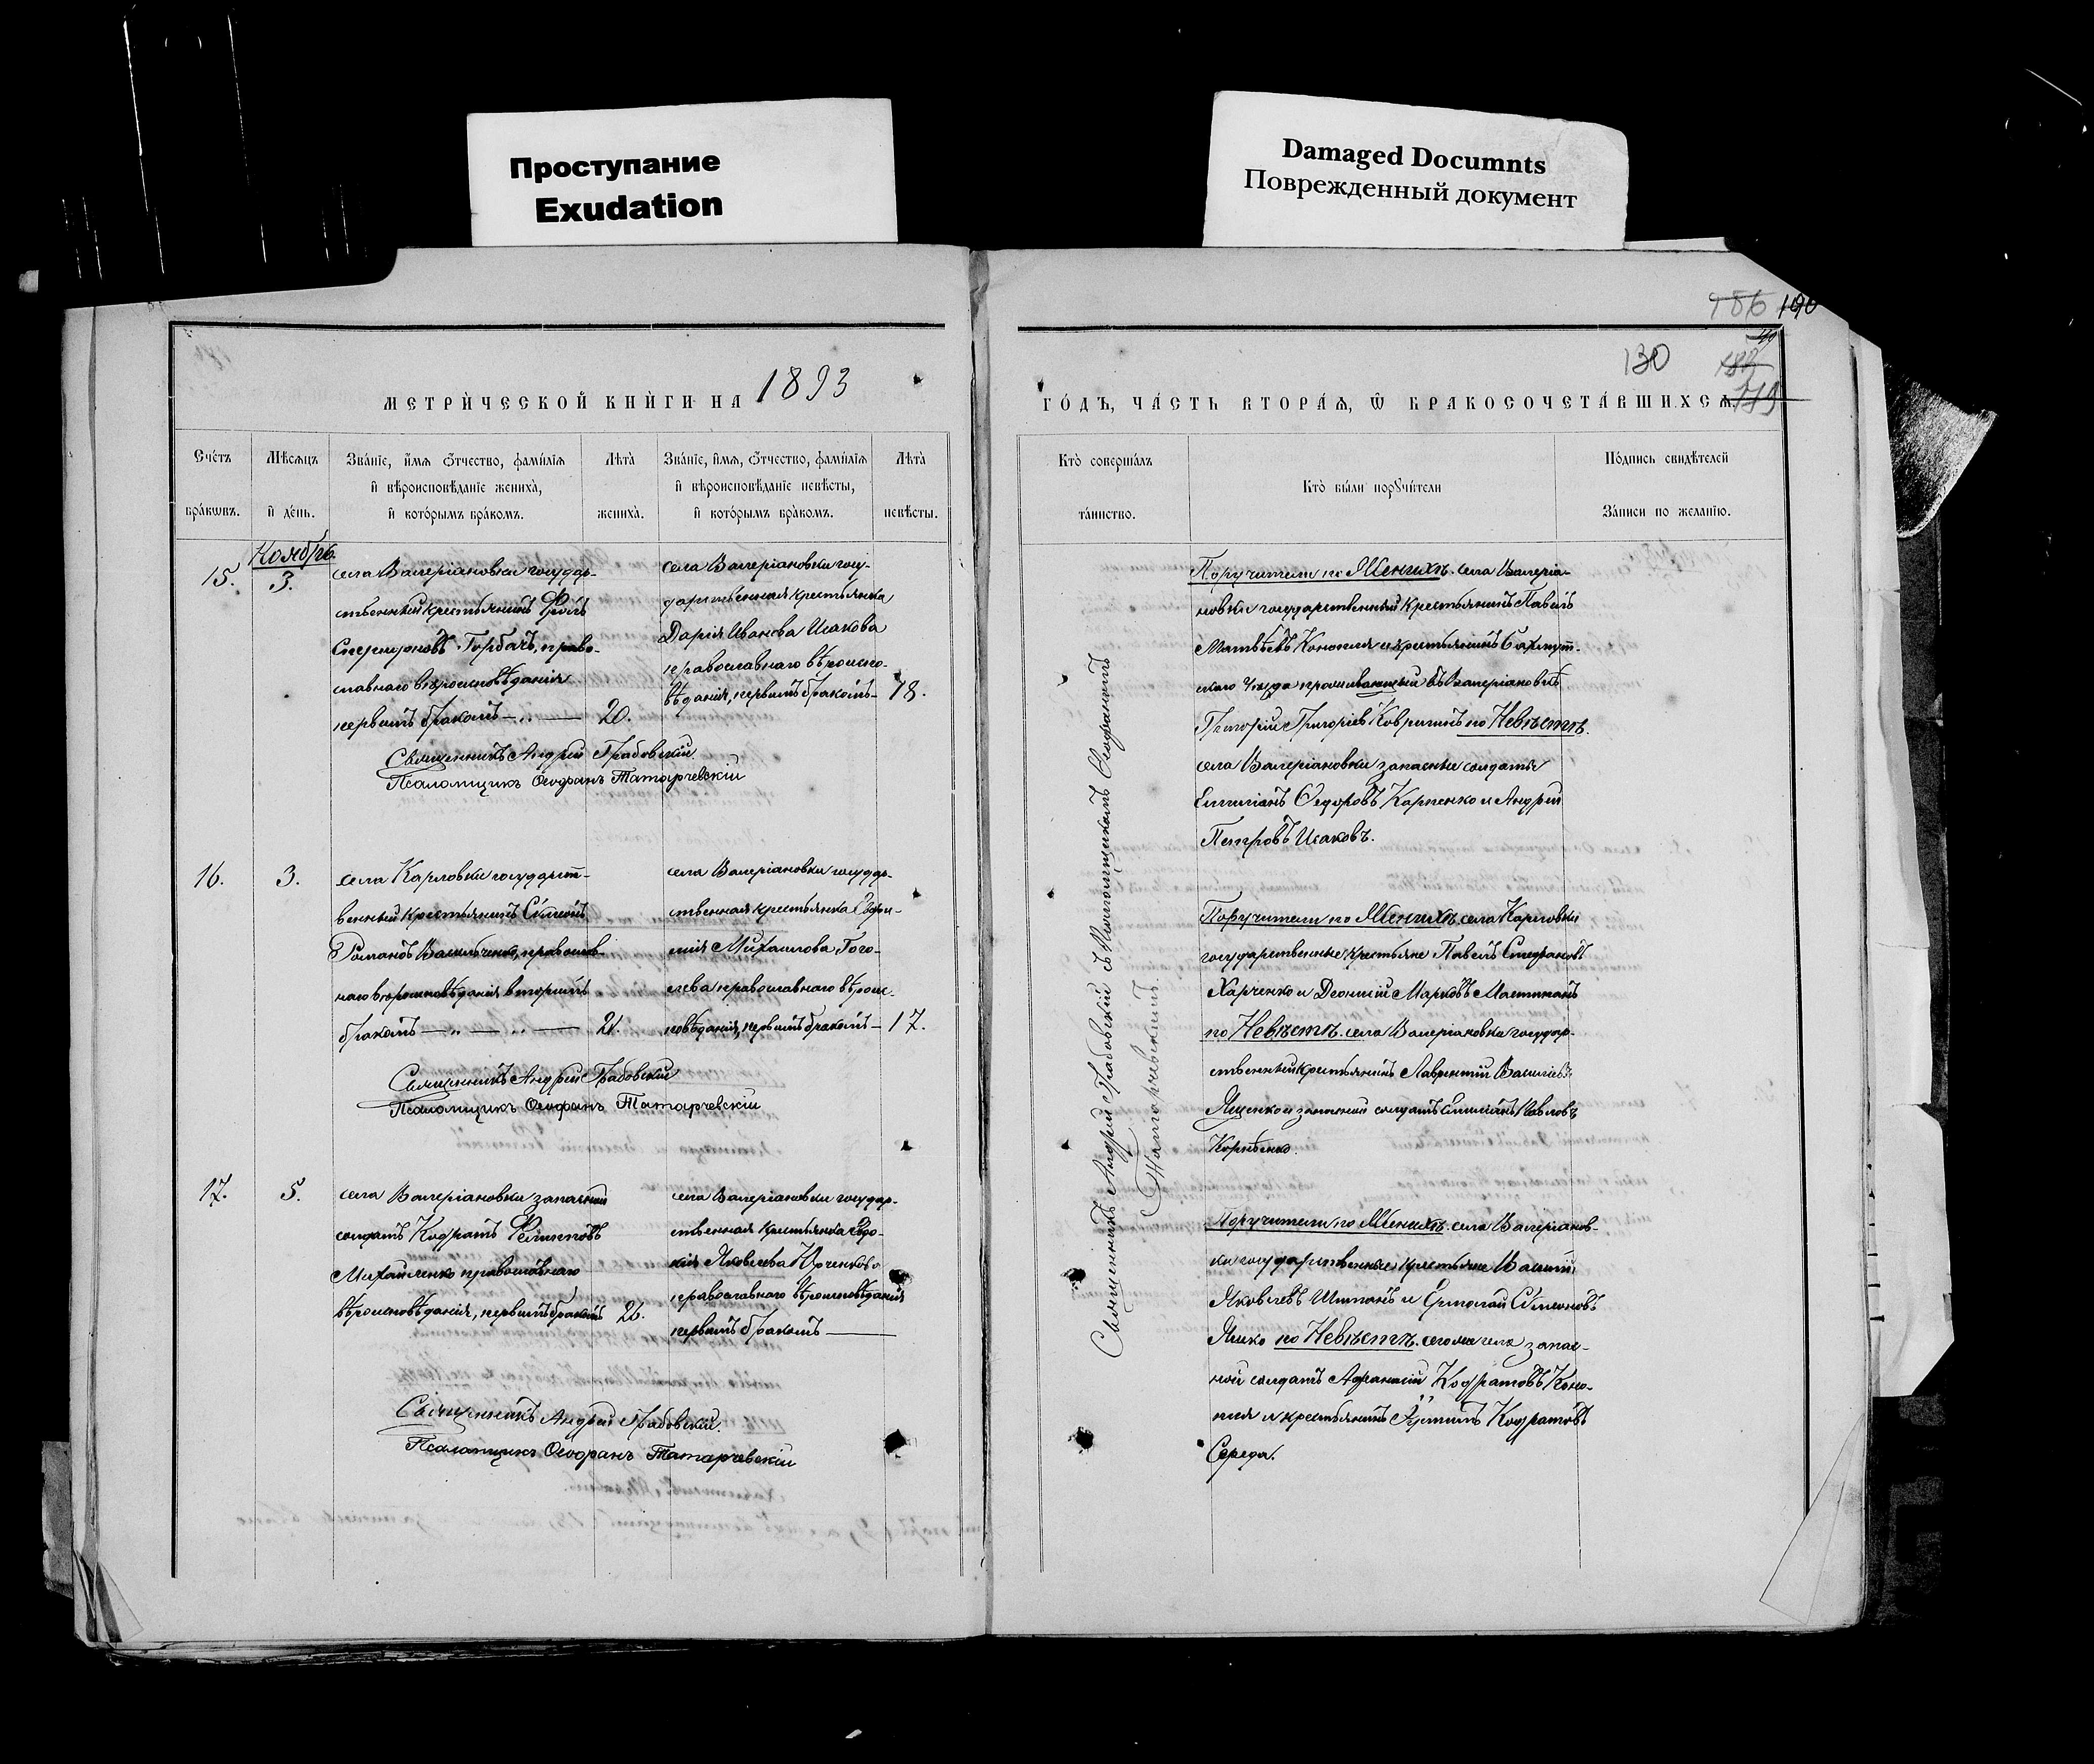 Проступание
Exudation
Damaged Documnts
Поврежденный документ
186 190
130
МЕТРИ́ЧЕСКОЙ КНИ́ГИ НА 1893
ГО́ДЪ, ЧА́СТЬ ВТОРА́Ѧ, Ѿ БРАКОСОЧЕТА́ВШИХСѦ.
Сче́тъ бра́кωвъ.
Мѣсѧцъ и҆ де́нь.
Зва́нїе, и҆́мѧ ѻ҆́тчество, фамилїѧ и҆ вѣроисповѣданїе жениха̀, и҆ кото́рымъ бра́комъ.
Лѣта̀ жениха̀.
Зва́нїе, и҆́мѧ, ѻ҆́тчество, фамилїѧ и҆ вѣроисповѣданїе невѣсты, и҆ кото́рымъ бра́комъ.
Лѣта̀ невѣсты.
Кто̀ соверша́лъ та́инство.
Кто̀ бы́ли порꙋчи́тели
По́дпись свидѣтелей За́писи по желанїю.
Ноябрь.
15.
3.
села Валеріановки государ-
ственный крестьянинъ
Горбачъ, право-
славнаго вѣроисповѣданія
первымъ бракомъ
20.
села Валеріановки госу-
дарственная крестьянка
Дарія Иванова Исакова
православнаго вѣроиспо-
вѣданія, первымъ бракомъ
18.
Священникъ Андрей Грабовскій
Псаломщикъ Ѳеофанъ Татарчевскій
16.
3.
села Карловки государст-
венный крестьянинъ Симеонъ
Романовъ Василь­ченко, православ-
наго вѣроисповѣданія вторымъ
бракомъ
21.
села Валеріановки государ-
ственная крестьянка
Михаилова Гого-
лева православнаго вѣроис-
повѣданія, первымъ бракомъ
17.
Священникъ Андрей Грабовскій
Псаломщикъ Ѳеофанъ Татарчевскій
17.
5.
села Валеріановки запасный
солдатъ Кодратъ Филиповъ
Михайленко православнаго
вѣроисповѣданія, первымъ бракомъ
села Валеріановки государ-
ственная крестьянка Евдо-
кія Яковлева
православнаго вѣроисповѣданія
первымъ бракомъ
Священникъ Андрей Грабовскій.
Псаломщикъ Ѳеофанъ Татарчевскій
Священникъ Андрей Грабовскій съ Псаломщикомъ Ѳеофаномъ
Татарчевскимъ.
Поручители по Женихѣ. села Валеріа-
новки государственный крестьянинъ Павелъ
Матвѣевъ Конопля и крестьянинъ Бахмут-
скаго уѣзда проживающый въ Валеріановкѣ
Григорій Григоріевъ по Невѣстѣ.
села Валеріановки запасные солдаты
Емиліанъ Ѳедоровъ Карпенко и Андрей
Петровъ Исаковъ.
Поручители по Женихѣ села Карловки
государственные крестьяне Павелъ Стефановъ
Харченко и Леонтій Марковъ
по Невѣстѣ. села Валеріановки государ-
ственный крестьянинъ Лаврентій Василіевъ
Яценко и запасный солдатъ Емиліанъ Павловъ
Поручители по Женихѣ. села Валеріанов-
ки государственные крестьяне Василій
Яковлевъ Шпанъ и Ермолай Симеоновъ
по Невѣстѣ. тогоже села запас-
ной солдатъ Афанасій Кодратовъ Коно-
пля и крестьянинъ Кодратовъ
Середа.